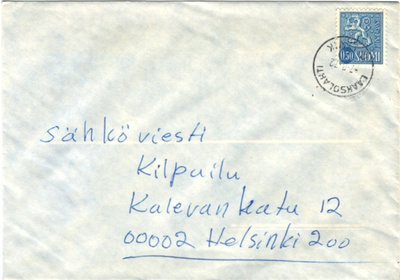 0,50 SUOMI
LAAKSOLAHTI
Sähköviesti
Kilpailu
Kalevankatu 12
00002 Helsinki 200